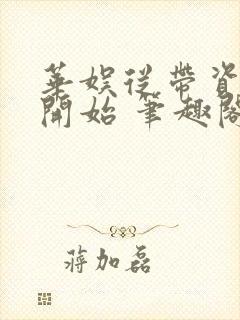 華娛從帶資
開始 筆趣閣
蔣加磊